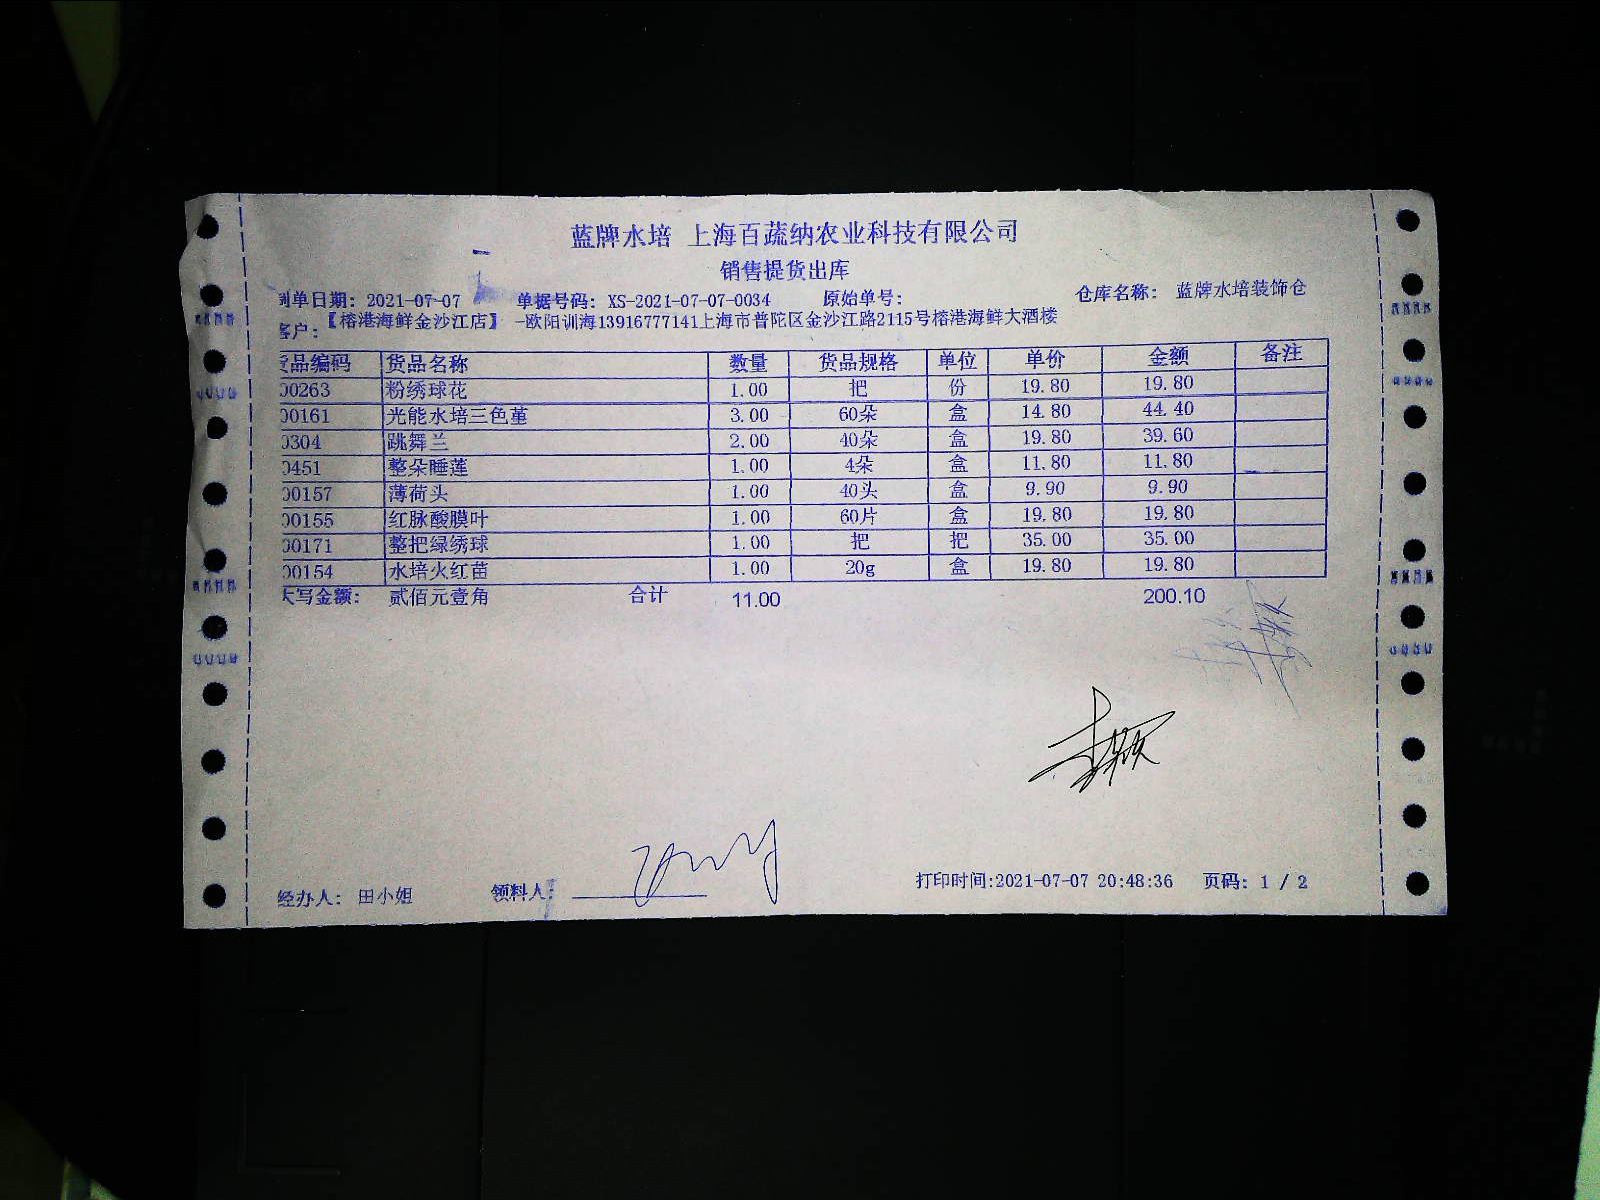 蓝牌水培 上海百蔬纳农业科技有限公司
销售提货出库
制单日期: 2021-07-07 单据号码: XS-2021-07-07-0034 原始单号: 仓库名称: 蓝牌水培装饰仓
客户: 【榕港海鲜金沙江店】 -欧阳训海13916777141上海市普陀区金沙江路2115号榕港海鲜大酒楼
货品编码 货品名称 数量 货品规格 单位 单价 金额 备注
00263 粉绣球花 1.00 把 份 19.80 19.80
00161 光能水培三色堇 3.00 60朵 盒 14.80 44.40
0304 跳舞兰 2.00 40朵 盒 19.80 39.60
0451 整朵睡莲 1.00 4朵 盒 11.80 11.80
00157 薄荷头 1.00 40头 盒 9.90 9.90
00155 红脉酸膜叶 1.00 60片 盒 19.80 19.80
00171 整把绿绣球 1.00 把 把 35.00 35.00
00154 水培火红苗 1.00 20g 盒 19.80 19.80
大写金额: 贰佰元壹角 合计 11.00 200.10
经办人: 田小姐 领料人: 打印时间:2021-07-07 20:48:36 页码: 1 / 2